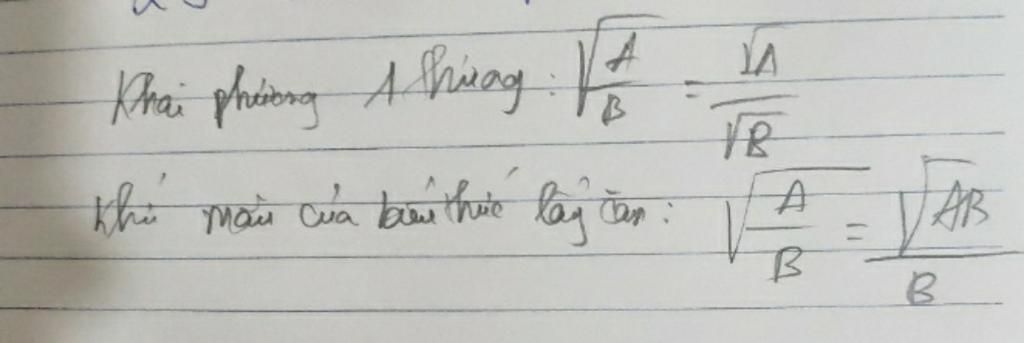 Khai phương 1 thương: √(A/B) = √A/√B
Khử mẫu của biểu thức lấy căn: √(A/B) = √(AB)/B